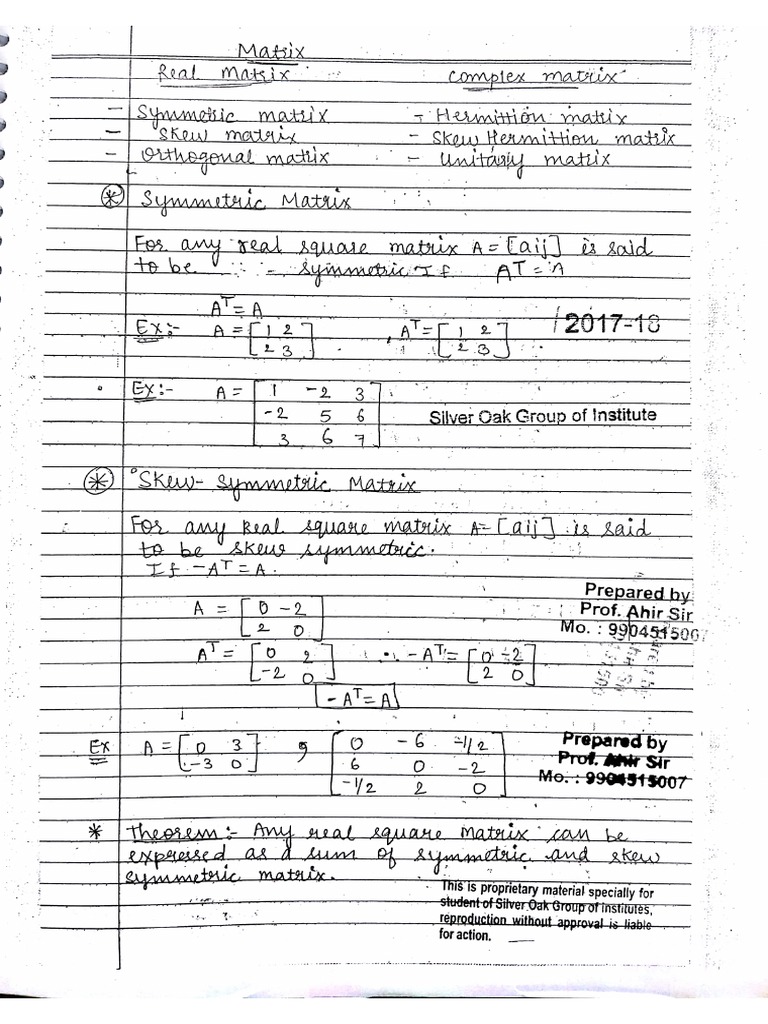 Matrix
Real Matrix complex matrix
- Symmetric matrix - Hermittion matrix
- Skew matrix - Skew Hermittion matrix
- Orthogonal matrix - Unitary matrix
* Symmetric Matrix
For any real square matrix A = [aij] is said
to be - symmetric If AT = A
AT = A
Ex:- A = [1 2 , AT = [1 2
2 3] 2 3]
2017-18
Ex:- A = [1 -2 3
-2 5 6
3 6 7]
Silver Oak Group of Institute
* Skew-Symmetric Matrix
For any Real square matrix A = [aij] is said
to be skew symmetric.
If -AT = A.
A = [0 -2
2 0]
Prepared by
Prof. Ahir Sir
Mo. : 9904515007
AT = [0 2 ∴ -AT = [0 -2
-2 0] 2 0]
-AT = A
Ex A = [0 3 , [0 -6 -1/2
-3 0] 6 0 -2
-1/2 2 0]
Prepared by
Prof. Ahir Sir
Mo. : 9904515007
* Theorem:- Any real square matrix can be
expressed as a sum of symmetric and skew
symmetric matrix.
This is proprietary material specially for
student of Silver Oak Group of Institutes,
reproduction without approval is liable
for action.